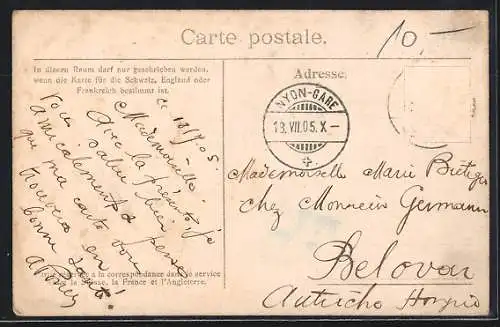 Carte postale.
10.-
In diesem Raum darf nur geschrieben werden,
wenn die Karte für die Schweiz, England oder
Frankreich bestimmt ist.
Adresse:
NYON-GARE
18.VII.05.X-
Mademoiselle
Avec la présente, je
vous
amicalement &
que ma carte vous
trouvera en
bonne santé!
à la correspondance dans le service
de la Suisse, la France et l'Angleterre.
Mademoiselle Marie
chez Monsieur Germann
Belovar
Autriche Hongrie